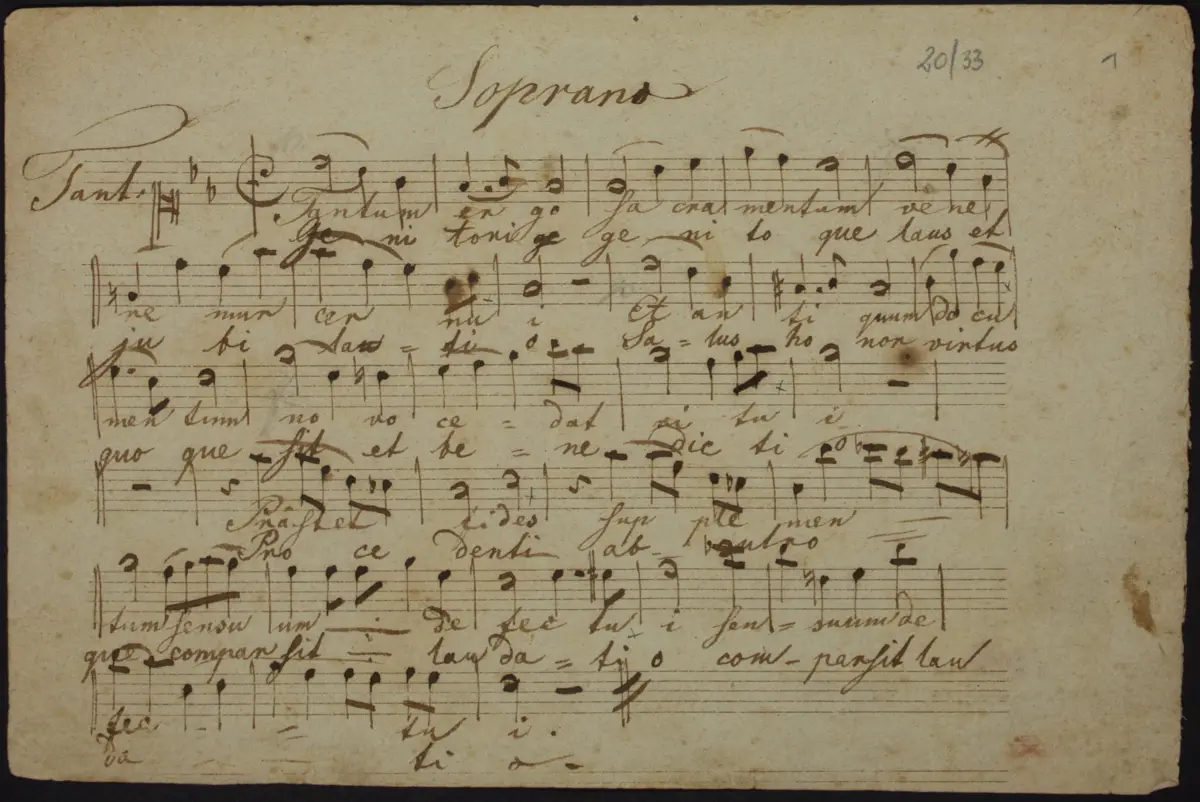 20/33 1
Soprano
Tant:
Tantum er go sa cra mentum ve ne
ge ni tori ge ge ni to que laus et
re mur cer nu i Et an ti quum do cu
ju bi lau = ti o. Sa = lus ho nor virtus
men tum no vo ce = dat ri tu i
quo que sit et be = ne dic ti o
Prästet fides sup ple men =
Pro ce denti ab utro =
tum sensu um = de fec tu i sen = suum de
que compar sit = lau da = ti o com - parsit lau
fec - - = tu i.
da ti o -